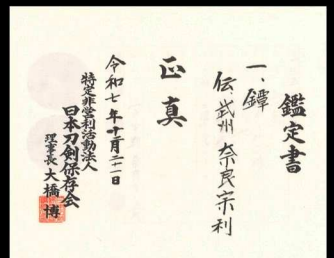 鑑定書
一、鐔
伝、武州 奈良宗利
正真
令和七年十二月二十一日
特定非営利活動法人
日本刀剣保存会
理事長 大橋博